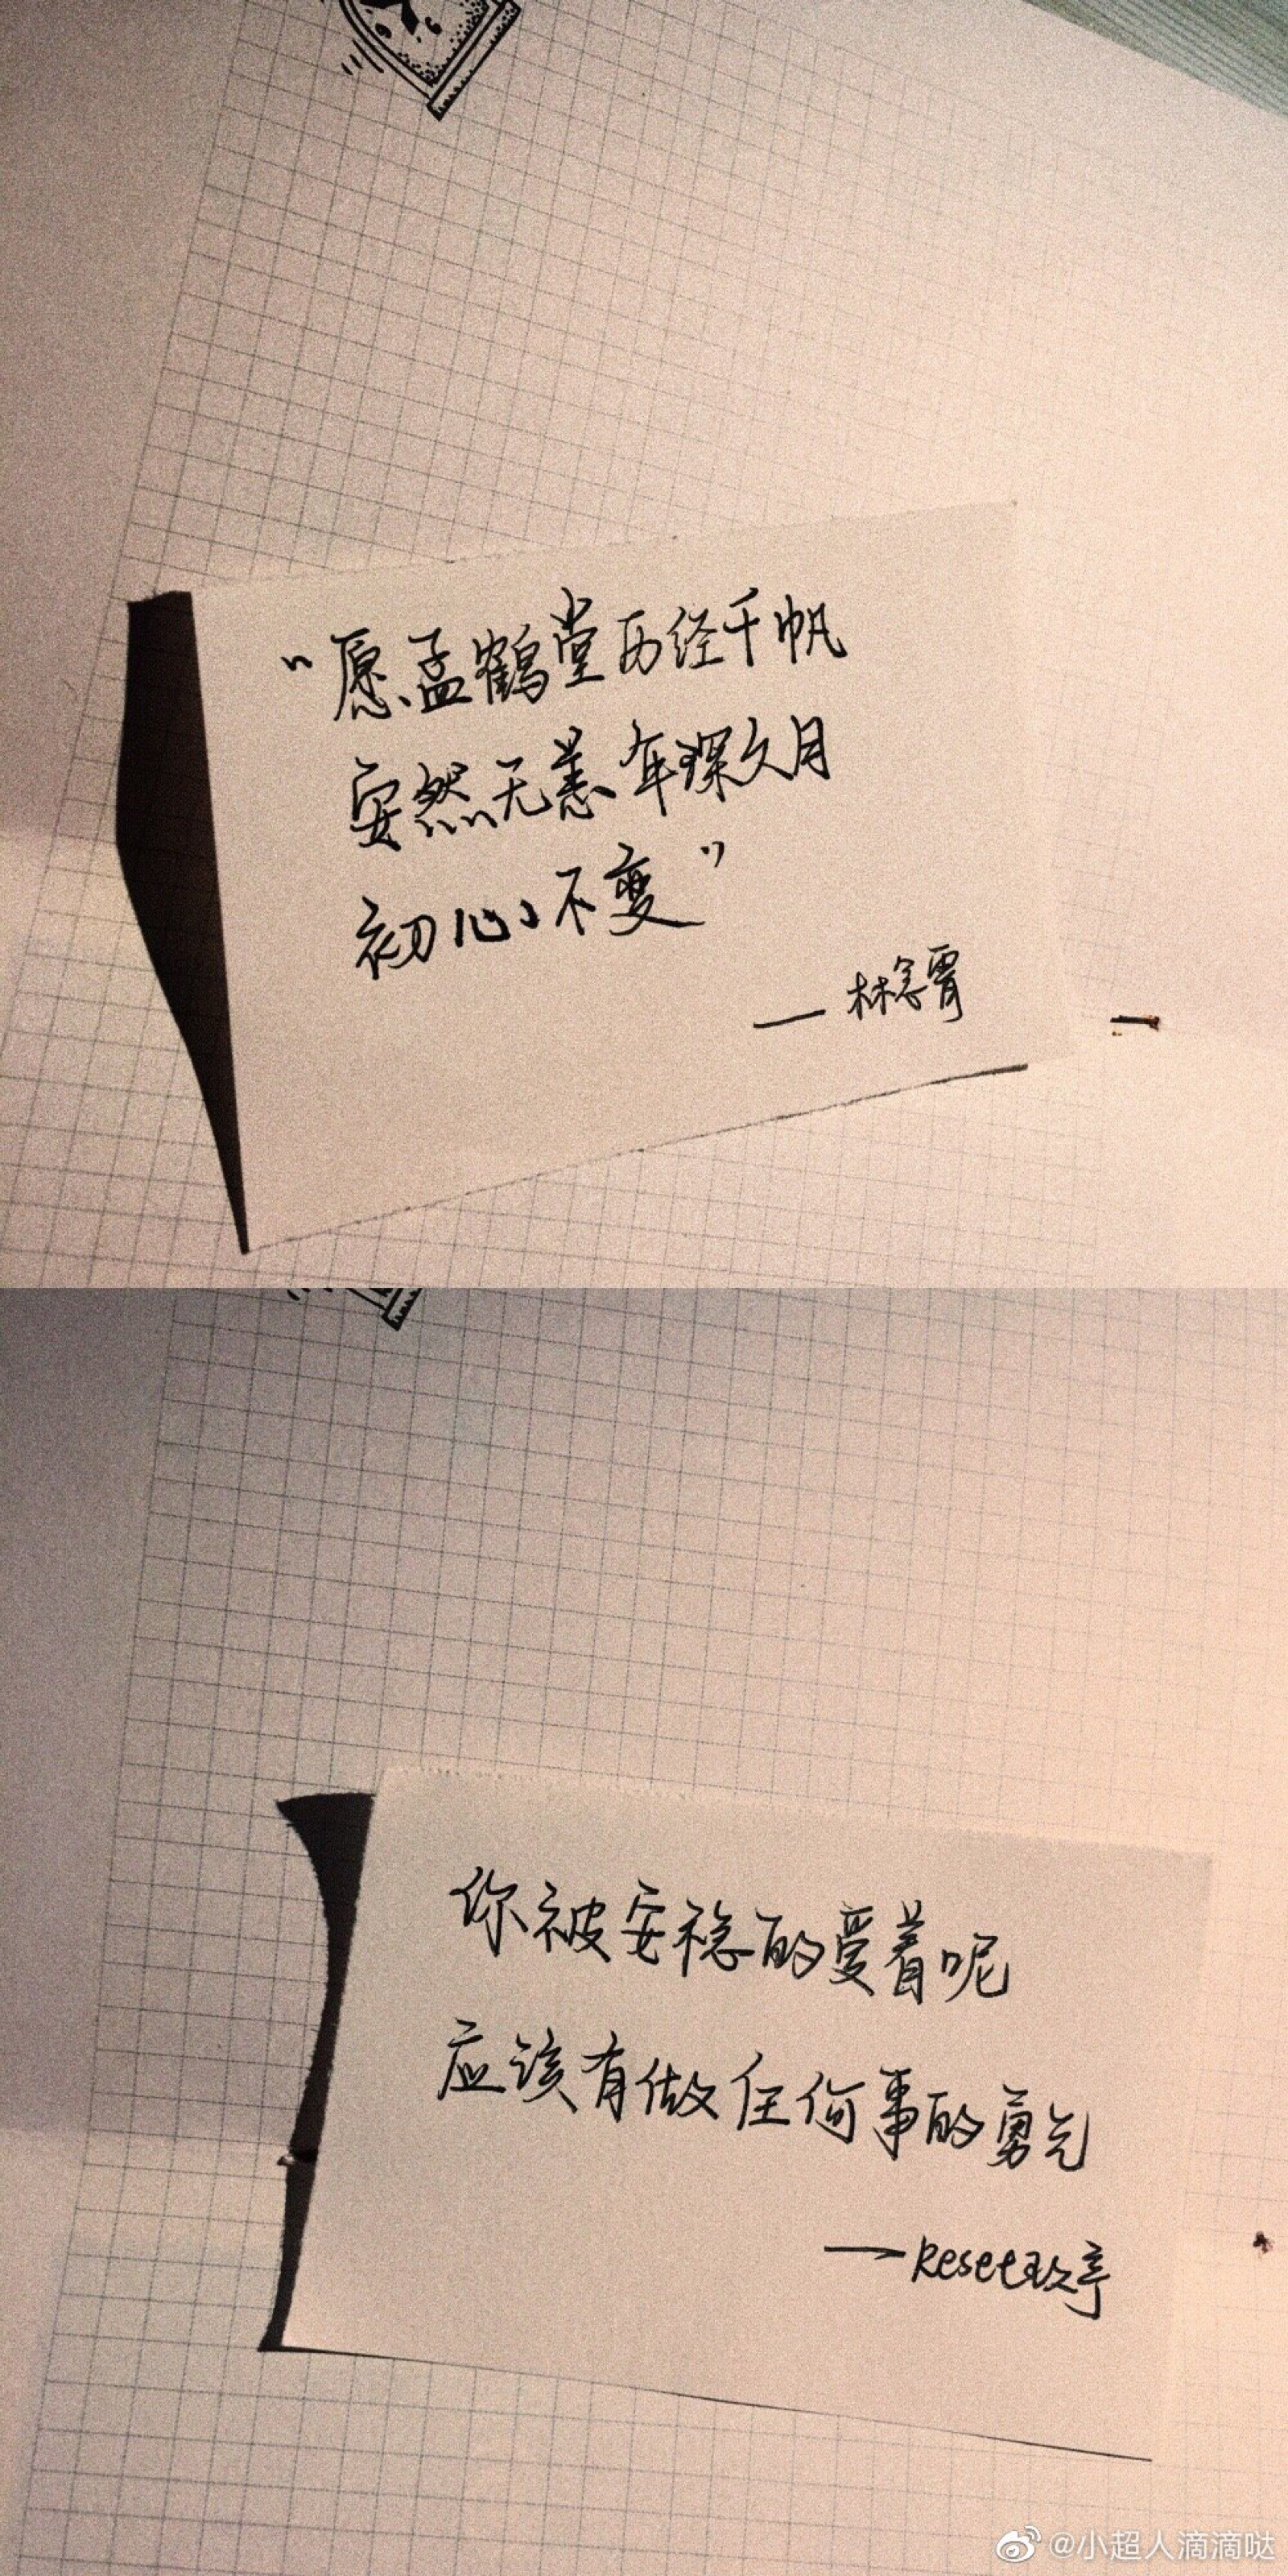 “愿孟鹤堂历经千帆
安然无恙年深久月
初心不变”
—林念霄
你被安稳的爱着呢
应该有做任何事的勇气
—Reset玖亭
@小超人滴滴哒